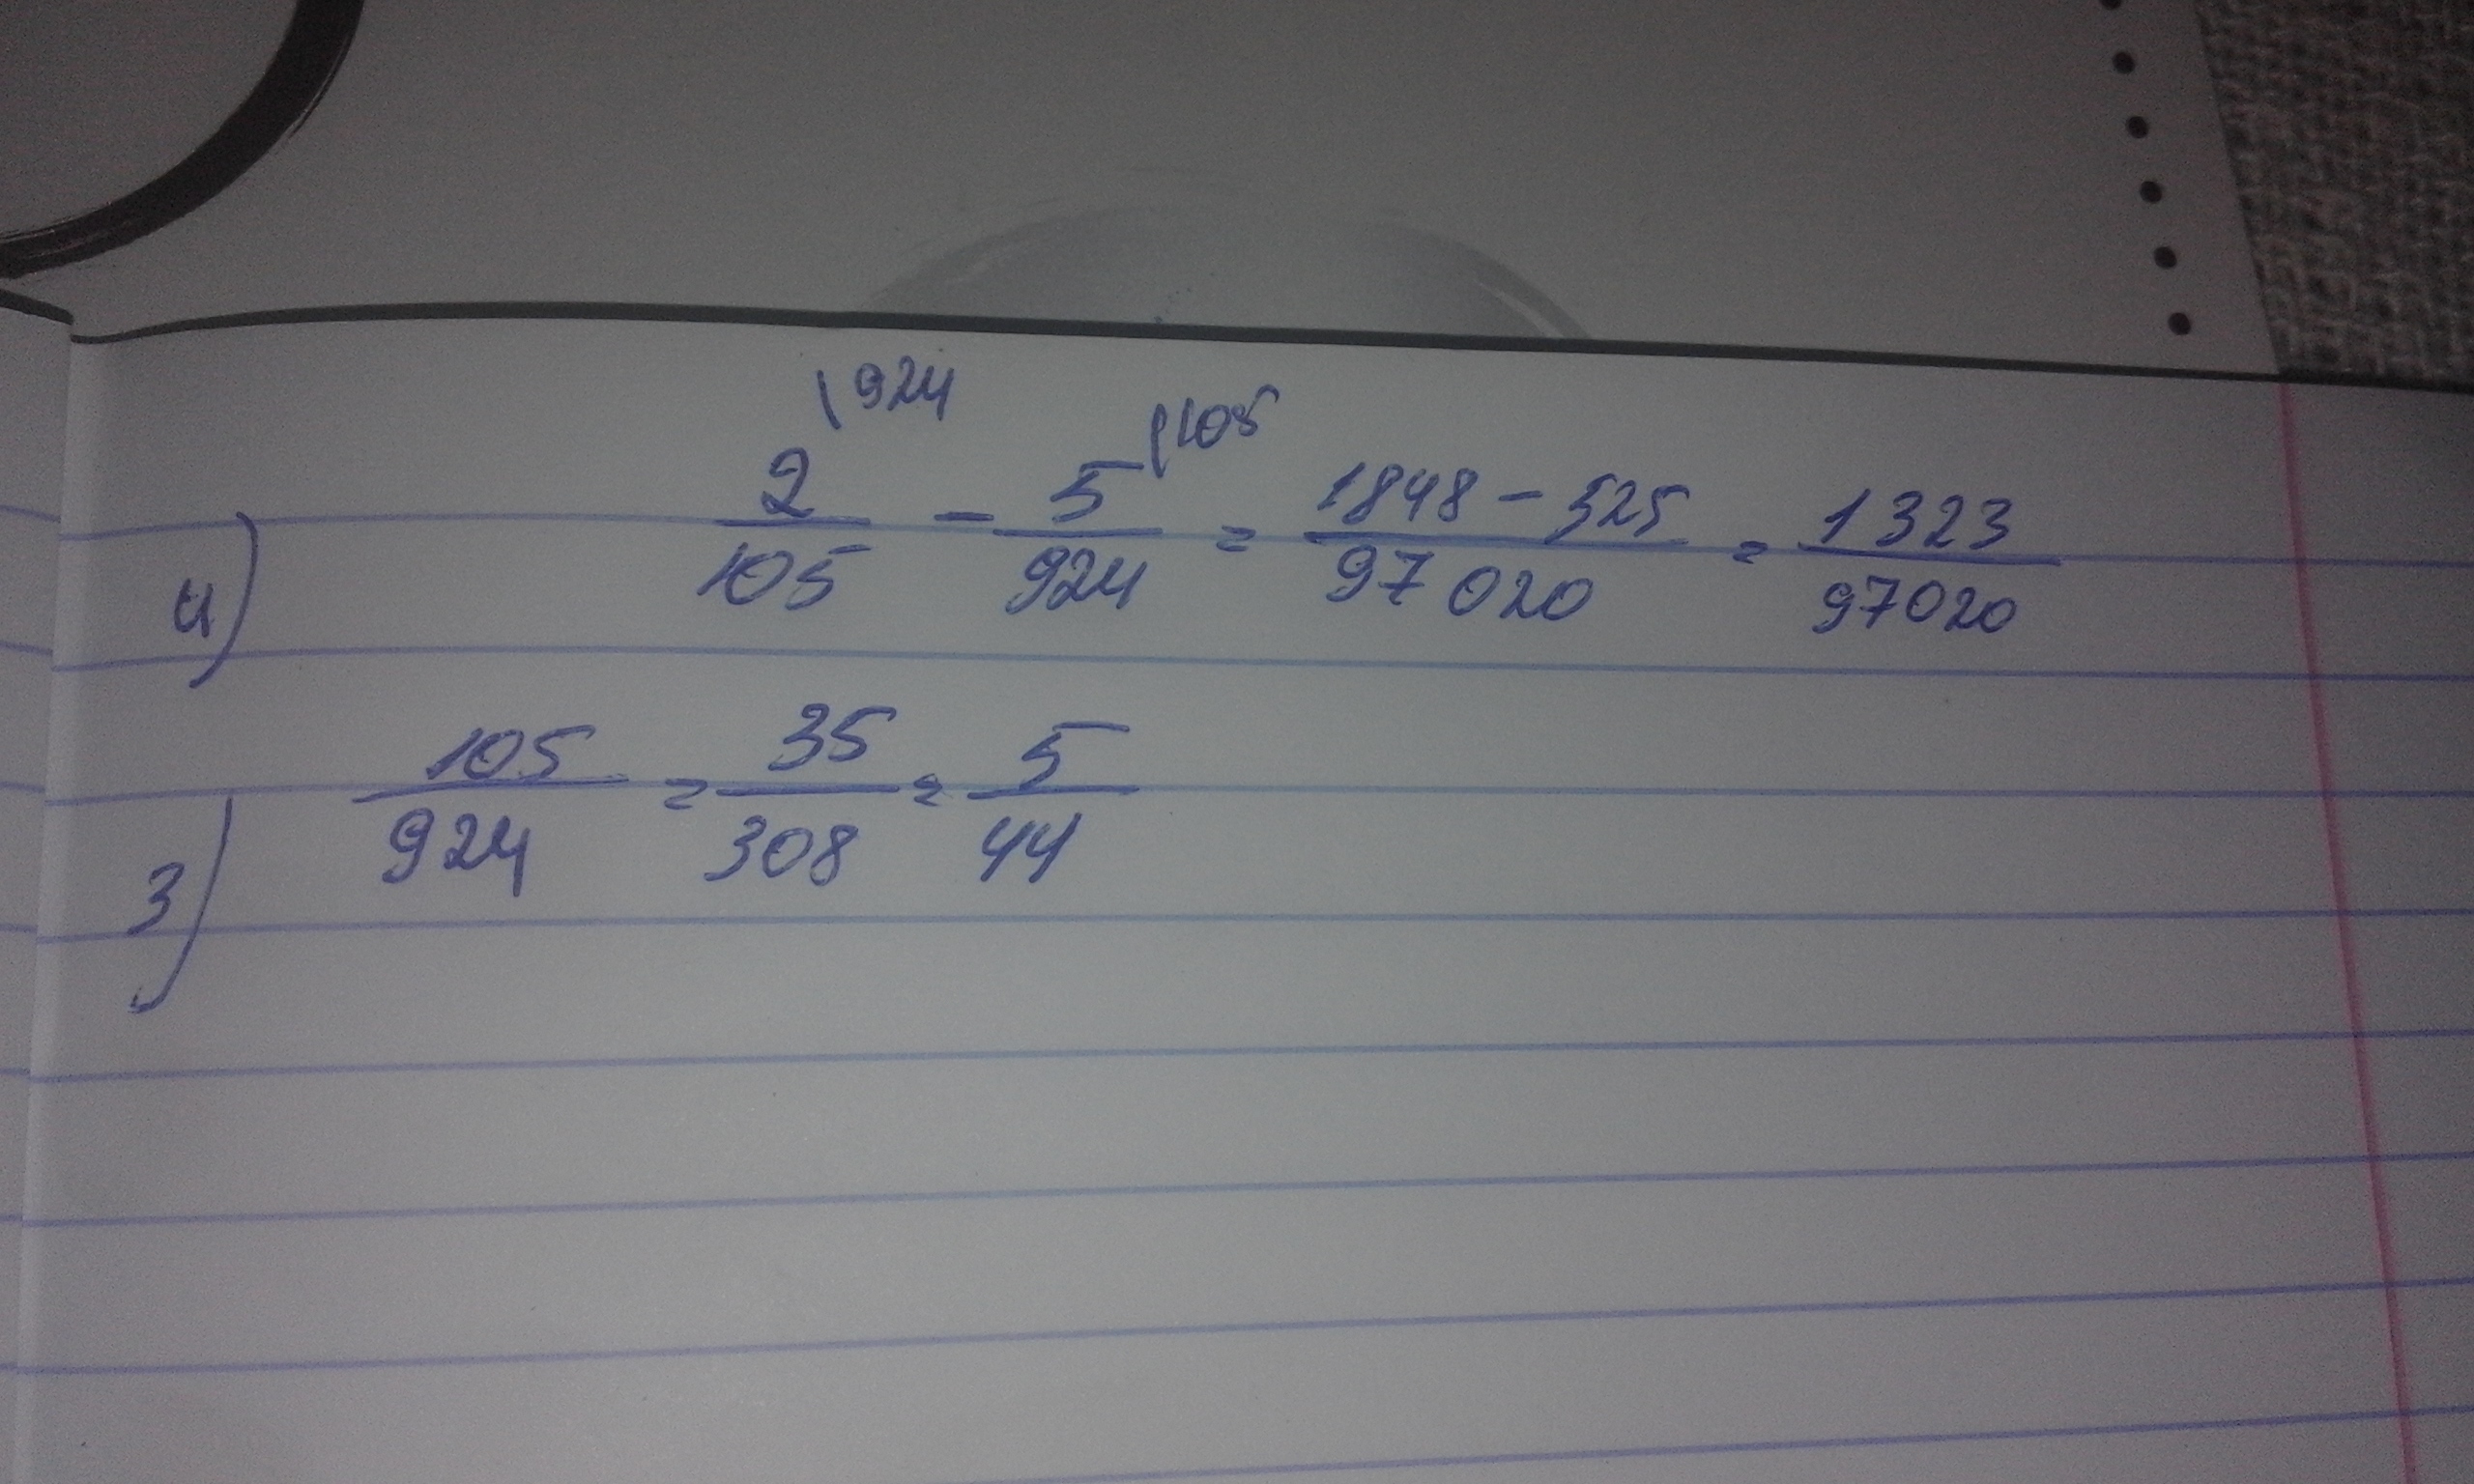 4) 2/105 \924 - 5/924 |105 = 1848 - 525/97 020 = 1323/97020
3) 105/924 = 35/308 = 5/44